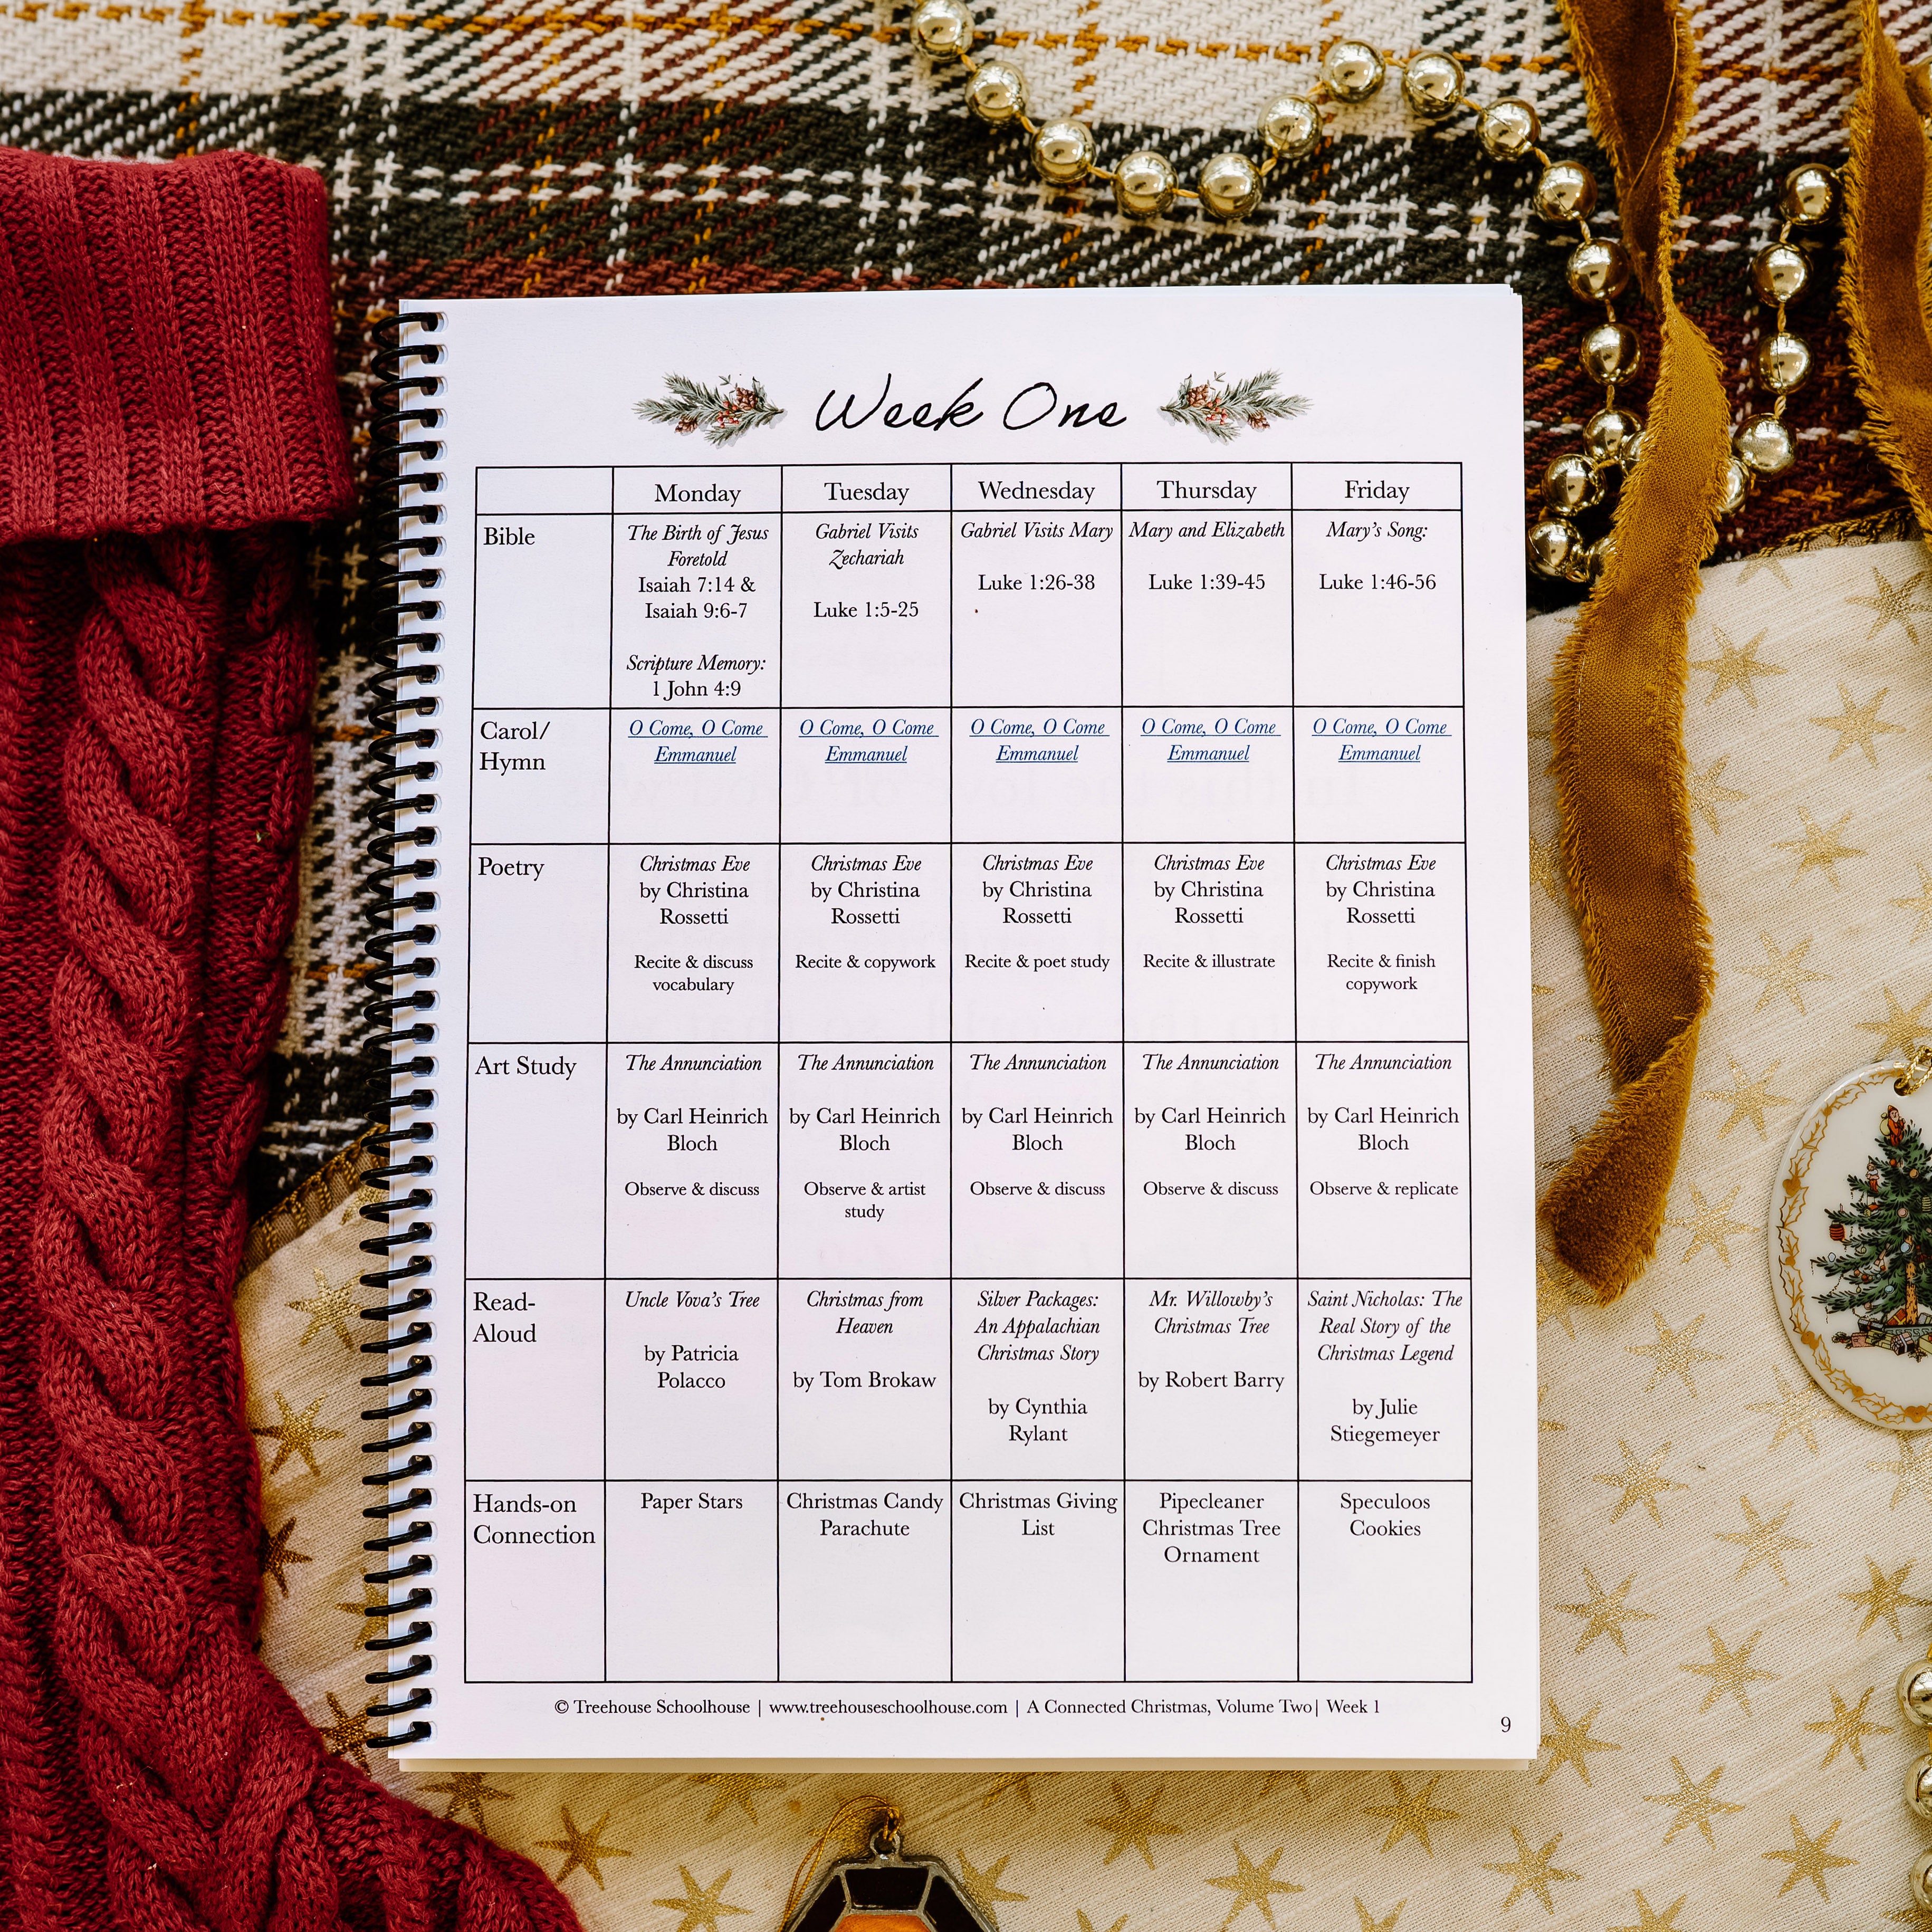 Week One
Monday
Tuesday
Wednesday
Thursday
Friday
Bible
The Birth of Jesus
Foretold
Isaiah 7:14 &
Isaiah 9:6-7
Scripture Memory:
1 John 4:9
Gabriel Visits
Zechariah
Luke 1:5-25
Gabriel Visits Mary
Luke 1:26-38
Mary and Elizabeth
Luke 1:39-45
Mary's Song:
Luke 1:46-56
Carol/
Hymn
O Come, O Come
Emmanuel
O Come, O Come
Emmanuel
O Come, O Come
Emmanuel
O Come, O Come
Emmanuel
O Come, O Come
Emmanuel
Poetry
Christmas Eve
by Christina
Rossetti
Recite & discuss
vocabulary
Christmas Eve
by Christina
Rossetti
Recite & copywork
Christmas Eve
by Christina
Rossetti
Recite & poet study
Christmas Eve
by Christina
Rossetti
Recite & illustrate
Christmas Eve
by Christina
Rossetti
Recite & finish
copywork
Art Study
The Annunciation
by Carl Heinrich
Bloch
Observe & discuss
The Annunciation
by Carl Heinrich
Bloch
Observe & artist
study
The Annunciation
by Carl Heinrich
Bloch
Observe & discuss
The Annunciation
by Carl Heinrich
Bloch
Observe & discuss
The Annunciation
by Carl Heinrich
Bloch
Observe & replicate
Read-
Aloud
Uncle Vova's Tree
by Patricia
Polacco
Christmas from
Heaven
by Tom Brokaw
Silver Packages:
An Appalachian
Christmas Story
by Cynthia
Rylant
Mr. Willowby's
Christmas Tree
by Robert Barry
Saint Nicholas: The
Real Story of the
Christmas Legend
by Julie
Stiegemeyer
Hands-on
Connection
Paper Stars
Christmas Candy
Parachute
Christmas Giving
List
Pipecleaner
Christmas Tree
Ornament
Speculoos
Cookies
© Treehouse Schoolhouse | www.treehouseschoolhouse.com | A Connected Christmas, Volume Two| Week 1
9